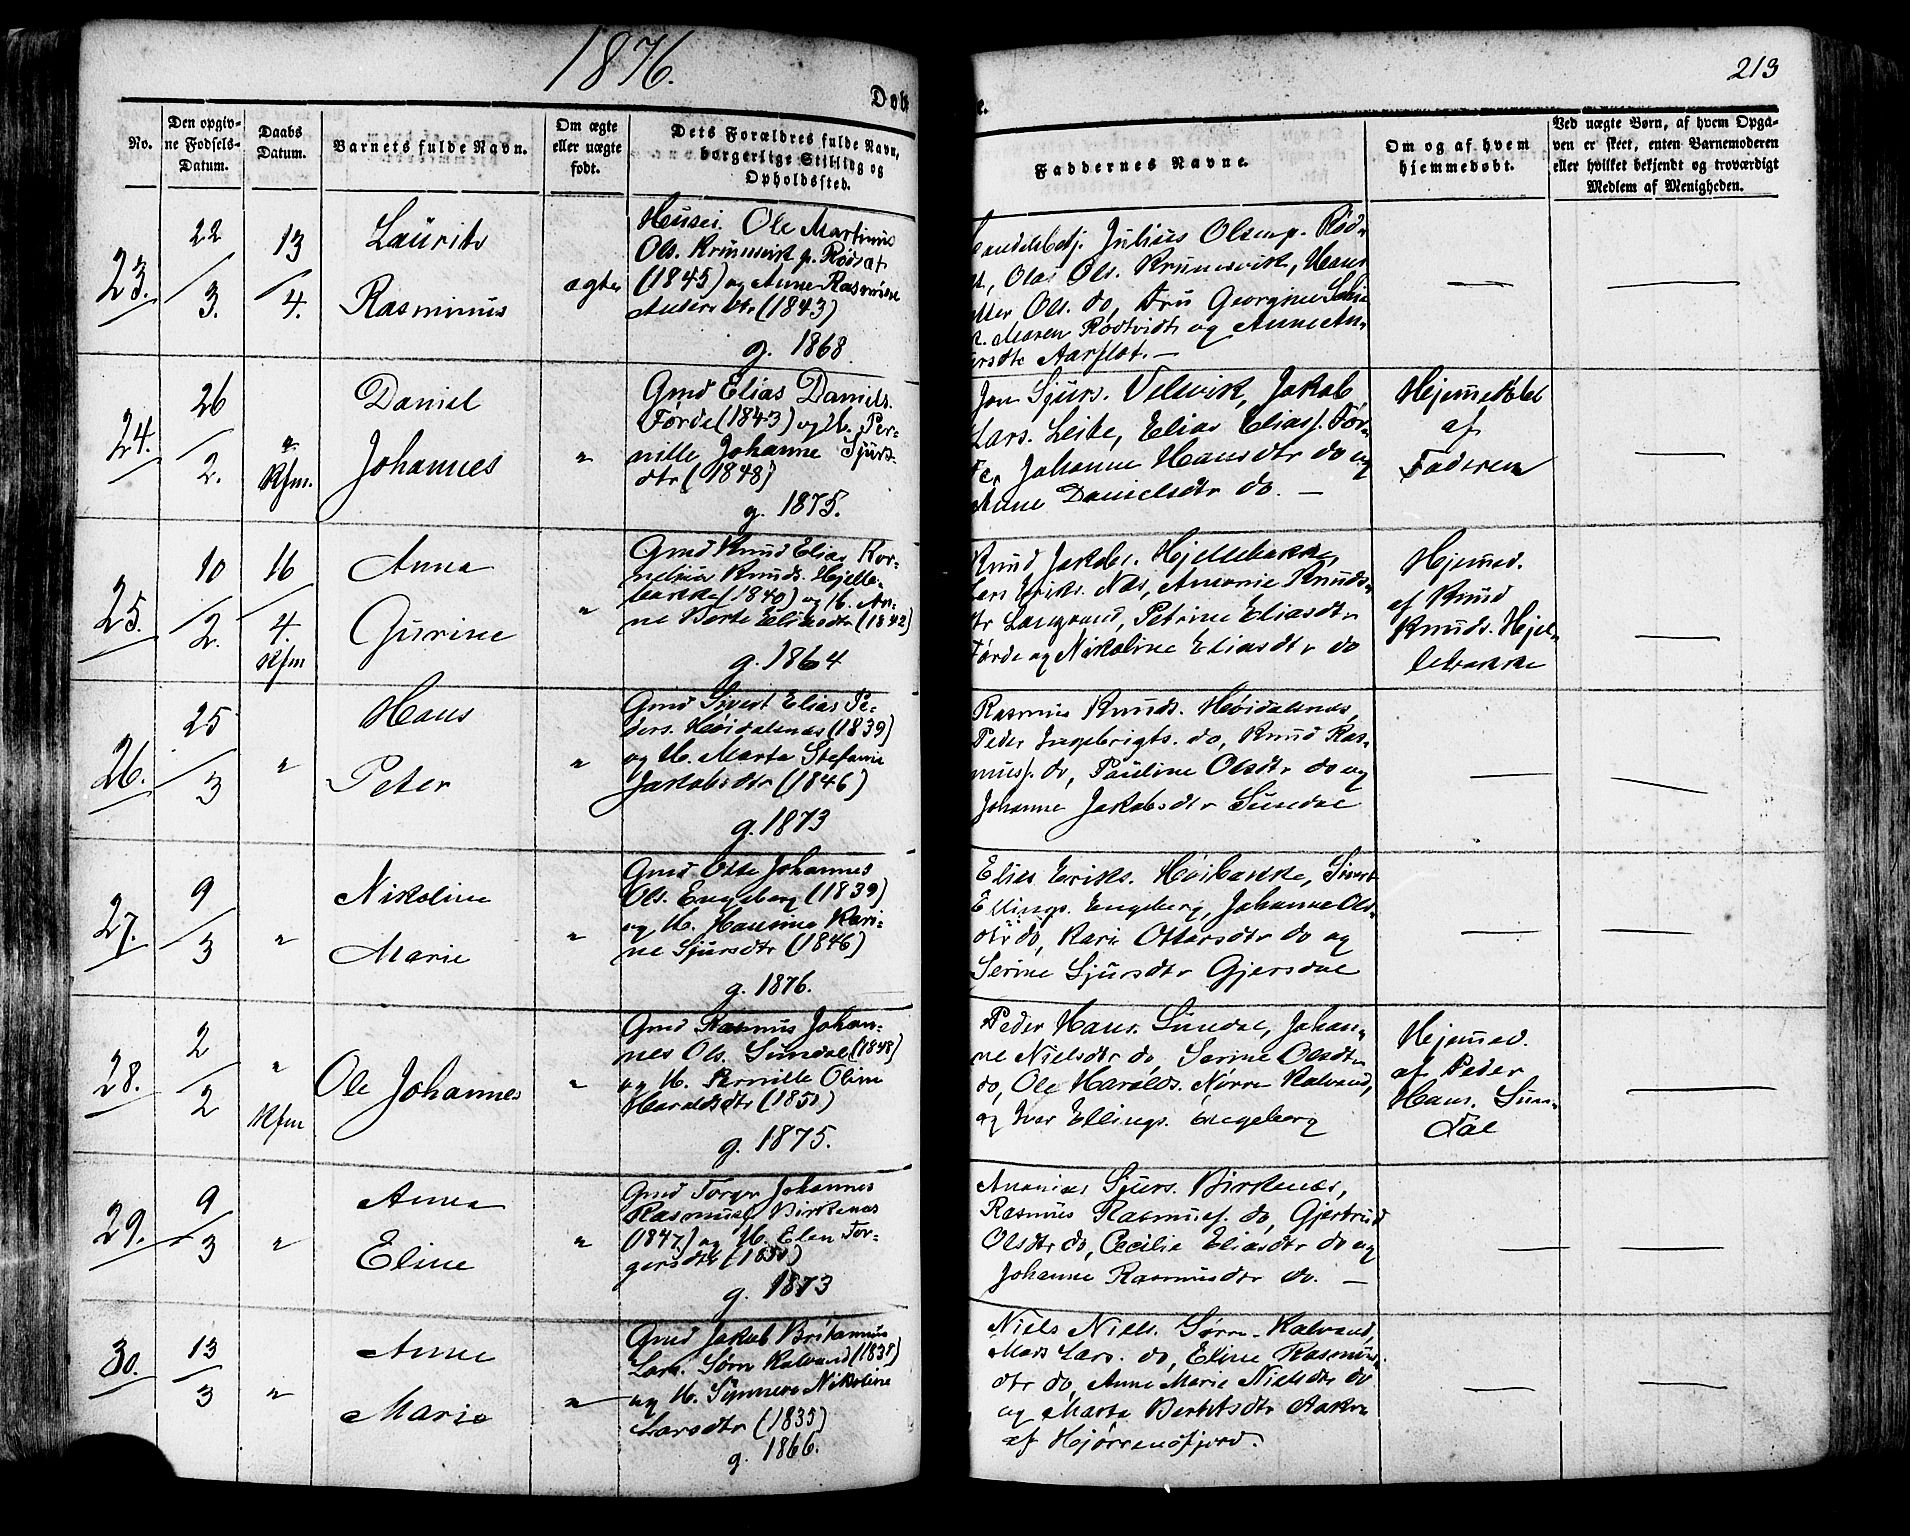 1876.
213
Døb
e.
No.
Den opgiv-
ne Fødsels-
Datum.
Daabs
Datum.
Barnets fulde Navn.
Om ægte
eller uægte
født.
Dets Forældres fulde Navn,
borgerlige Stilling og
Opholdssted.
Faddernes Navne.
Om og af hvem
hjemmedøbt.
Ved uægte Børn, af hvem Opga-
ven er skeet, enten Barnemoderen
eller hvilket bekjendt og troværdigt
Medlem af Menigheden.
23.
22
3.
13
4.
Laurits
Rasminus
ægte
Ole Martinus
Ols. Krumsvik p. Rødsæt
(1845) og Anne Rasmine
(1843)
g. 1868.
Julius Olsen p. Rød-
Olai Ols. Krumsvik, Hans
Ols. do, Fru Georgine
Maren Rødtvidt og Anne An-
Aarflot. —
24.
26
2.
"
Kfm.
Daniel
Johannes
"
Gmd Elias Daniels.
Førde (1843) og H. Per-
nille Johanne Sjurs-
dtr (1848)
g. 1875.
Jon Sjurs. Velsvik, Jakob
Lars. Leite, Elias Eliass. Før-
de, Johanne Hansdtr do og
Ane Danielsdtr do. —
Hjemmedøbt
af
Faderen
25.
10
2.
16
4.
Kfm
Anna
Gurine
"
Gmd Knud Elias Kor-
nelius Knuds. Hjelle-
bakke (1840) og H. An-
ne Berte Eliasdtr (1842)
g. 1864
Knud Jakobs. Hjellebakke,
Lars Eriks. Næs, Antonie Knuds-
dtr Langvand, Petrine Eliasdtr
Førde og Nikoline Eliasdtr do
Hjemmed.
af Knud
Knuds. Hjel-
lebakke
26.
25
3
"
Hans
Peter
"
Gmd Sivert Elias Pe-
ders. Høidalsnæs (1839)
og H. Marta Stefanie
Jakobsdtr (1846)
g. 1873
Rasmus Knuds. Høidalsnæs,
Peder Ingebrigts. do, Knud Ras-
muss. do, Pauline Olsdtr do og
Johanne Jakobsdtr Sundal
27.
9
3
"
Nikoline
Marie
"
Gmd Otte Johannes
Ols. Engeberg (1839)
og H. Hansine Kari-
ne Sjursdtr (1846)
g. 1876.
Elias Eriks. Høibakke, Sivert
Ellings. Engeberg, Johanne Ols-
dtr do, Kari Ottarsdtr do og
Serine Sjursdtr Gjersdal
28.
2
2
"
Kfm
Ole Johannes
"
Gmd Rasmus Johan-
nes Ols. Sundal (1848)
og H. Pernille Oline
Haraldsdtr (1850)
g. 1875.
Peder Hans. Sundal, Johan-
ne Nielsdtr do, Serine Olsdtr
do, Ole Haralds. Nørre Kalvand,
og Iver Ellings. Engeberg
Hjemmed.
af Peder
Hans. Sun-
dal
29.
9
3
"
Anna
Eline
"
Gmd Torger Johannes
Rasmuss. Birkenæs
(1847) og H. Elen Tor-
gersdtr (1850)
g. 1873
Ananias Sjurs. Birkenæs,
Rasmus Rasmuss. do, Gjertrud
Olsdtr do, Cecilie Eliasdtr do og
Johanne Rasmusdtr do. —
30.
13
3
"
Anne
Marie
"
Gmd Jakob Britanus
Lars. Sørre Kalvand (1838)
og H. Synneve Nikoline
Larsdtr (1835)
g. 1866.
Niels Niels. Sørre-Kalvand,
Mads Lars. do, Eline Rasmus-
dtr do, Anne Marie Nielsdtr do
og Marte Berhtsdtr Aakre
af Hjørrensfjord.